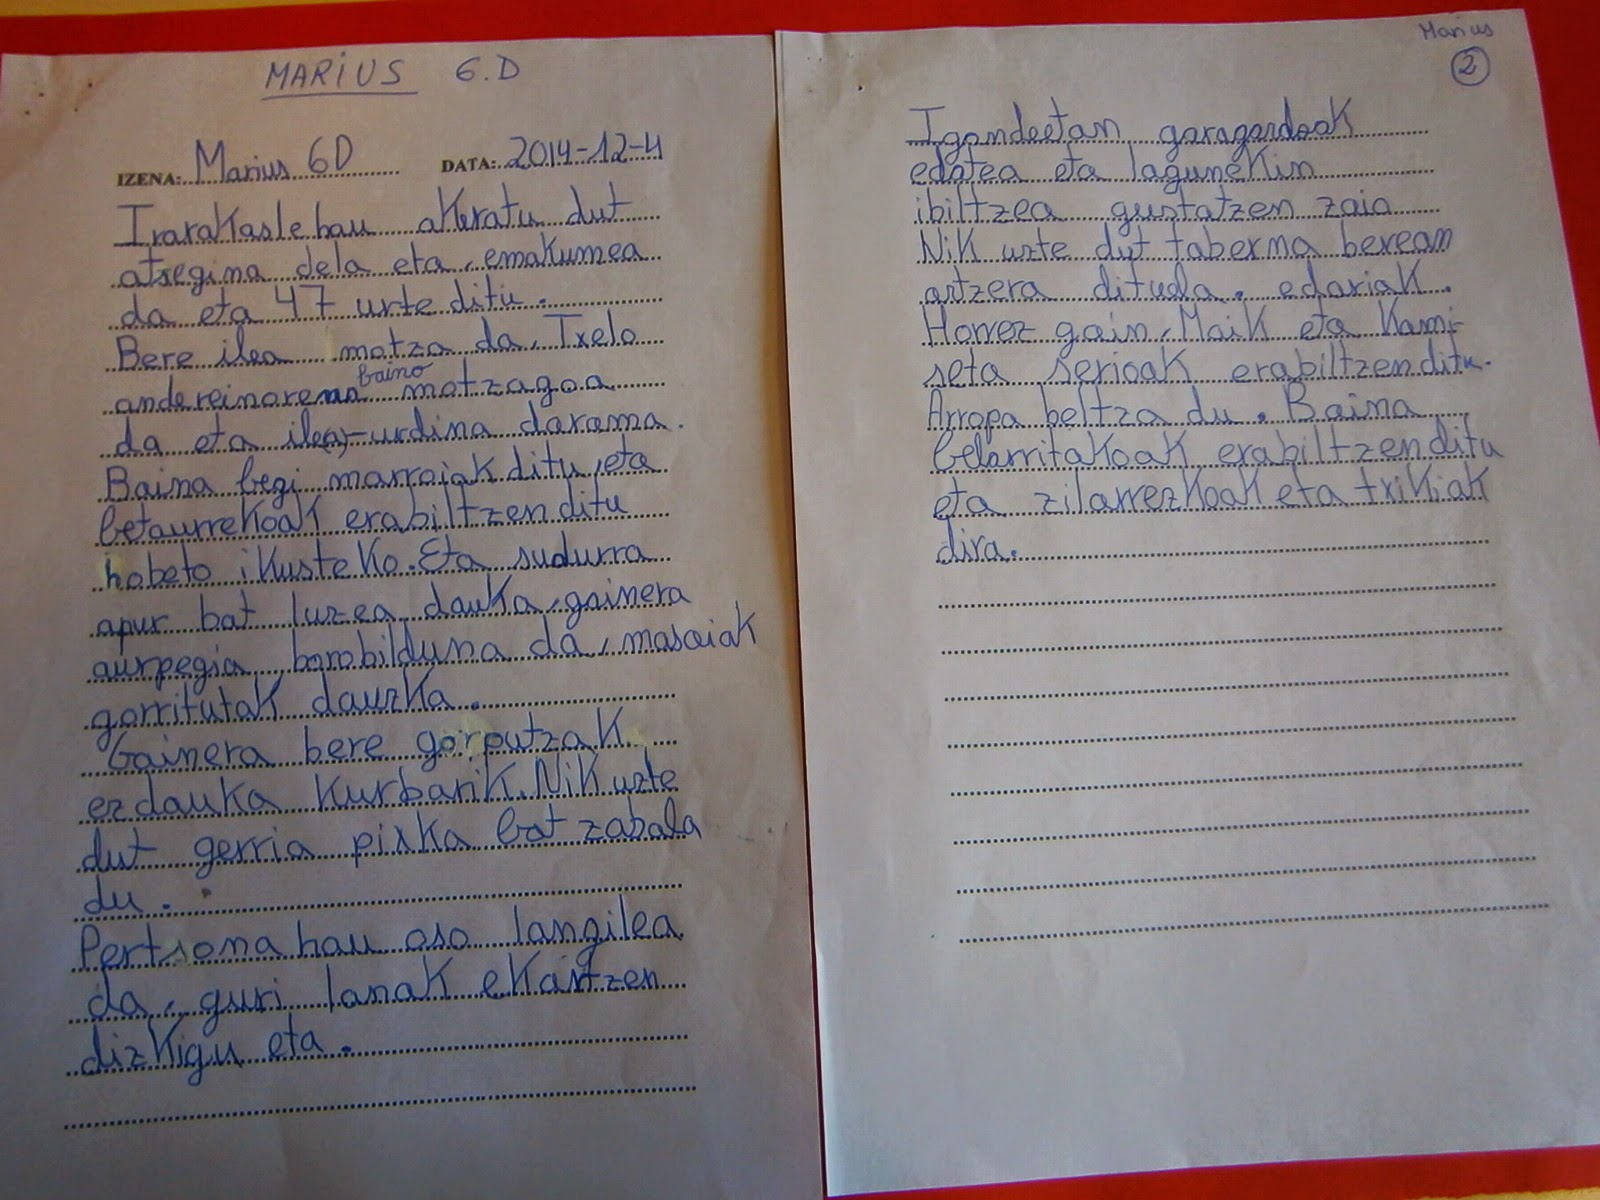 MARIUS 6.D
IZENA: Marius 6D DATA: 2014-12-4
Irarakasle hau akeratu dut
atsegina dela eta, emakumea
da eta 47 urte ditu.
Bere ilea motza da, Txelo
andereinorena baino motzagoa
da eta ile(a)-urdina darama.
Baina begi marroiak ditu, eta
betaurrekoak erabiltzen ditu
hobeto ikusteko. Eta sudurra
apur bat luzea dauka, gainera
aurpegia borobilduna da, masaiak
gorritutak dauzka.
Gainera bere gorputzak
ez dauka kurbarik. Nik uzte
dut gerria pixka bat zabala
du.
Pertsona hau oso langilea
da, guri lanak ekartzen
dizkigu eta.
Marius
2
Igandeetan garagardoak
edatea eta lagunekin
ibiltzea gustatzen zaio
Nik uzte dut taberna berean
artzera dituela. edariak.
Horrez gain, Maik eta kami-
seta serioak erabiltzen ditu.
Arropa beltza du. Baina
belarritakoak erabiltzen ditu
eta zilarrezkoak eta txikiak
dira.